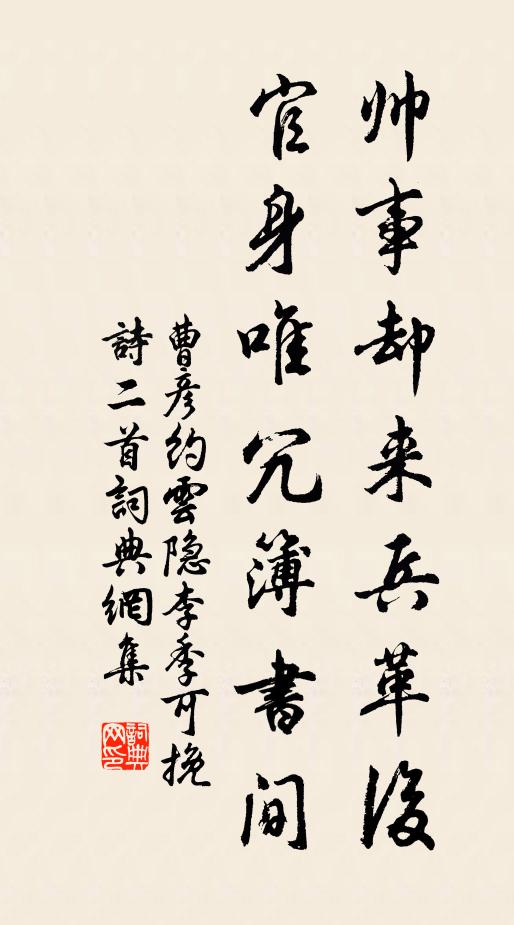 帅事却来兵革后
官身唯冗簿書间
曹彦约雲隐李季可挽
詩二首詞典網集
詞典网印